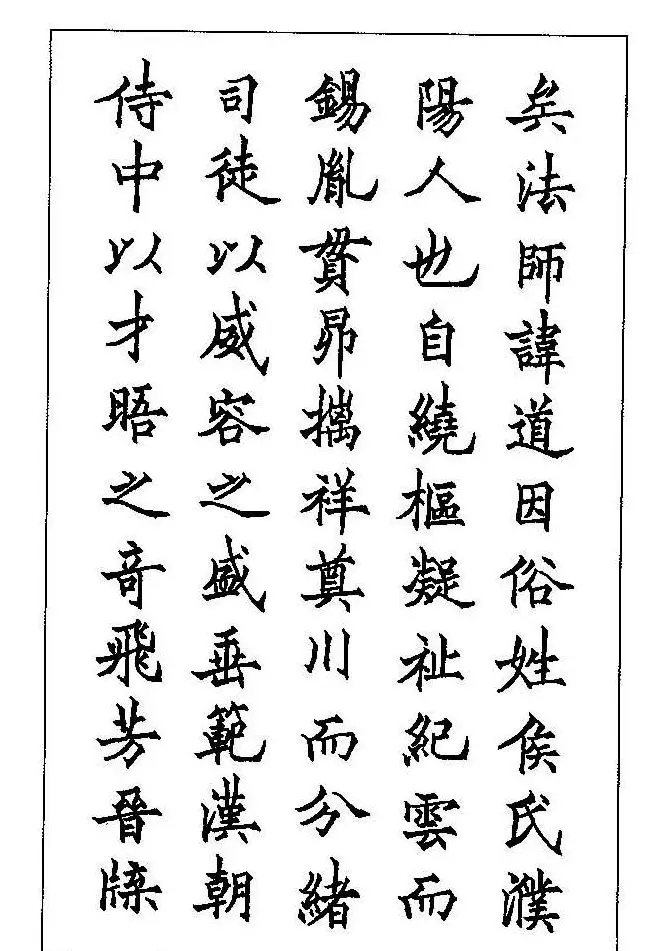 矣法師諱道因俗姓侯氏濮
陽人也自繞樞凝祉紀雲而
錫胤貫昴摛祥奠川而分緒
司徒以威容之盛垂範漢朝
侍中以才晤之竒飛芳晉牒